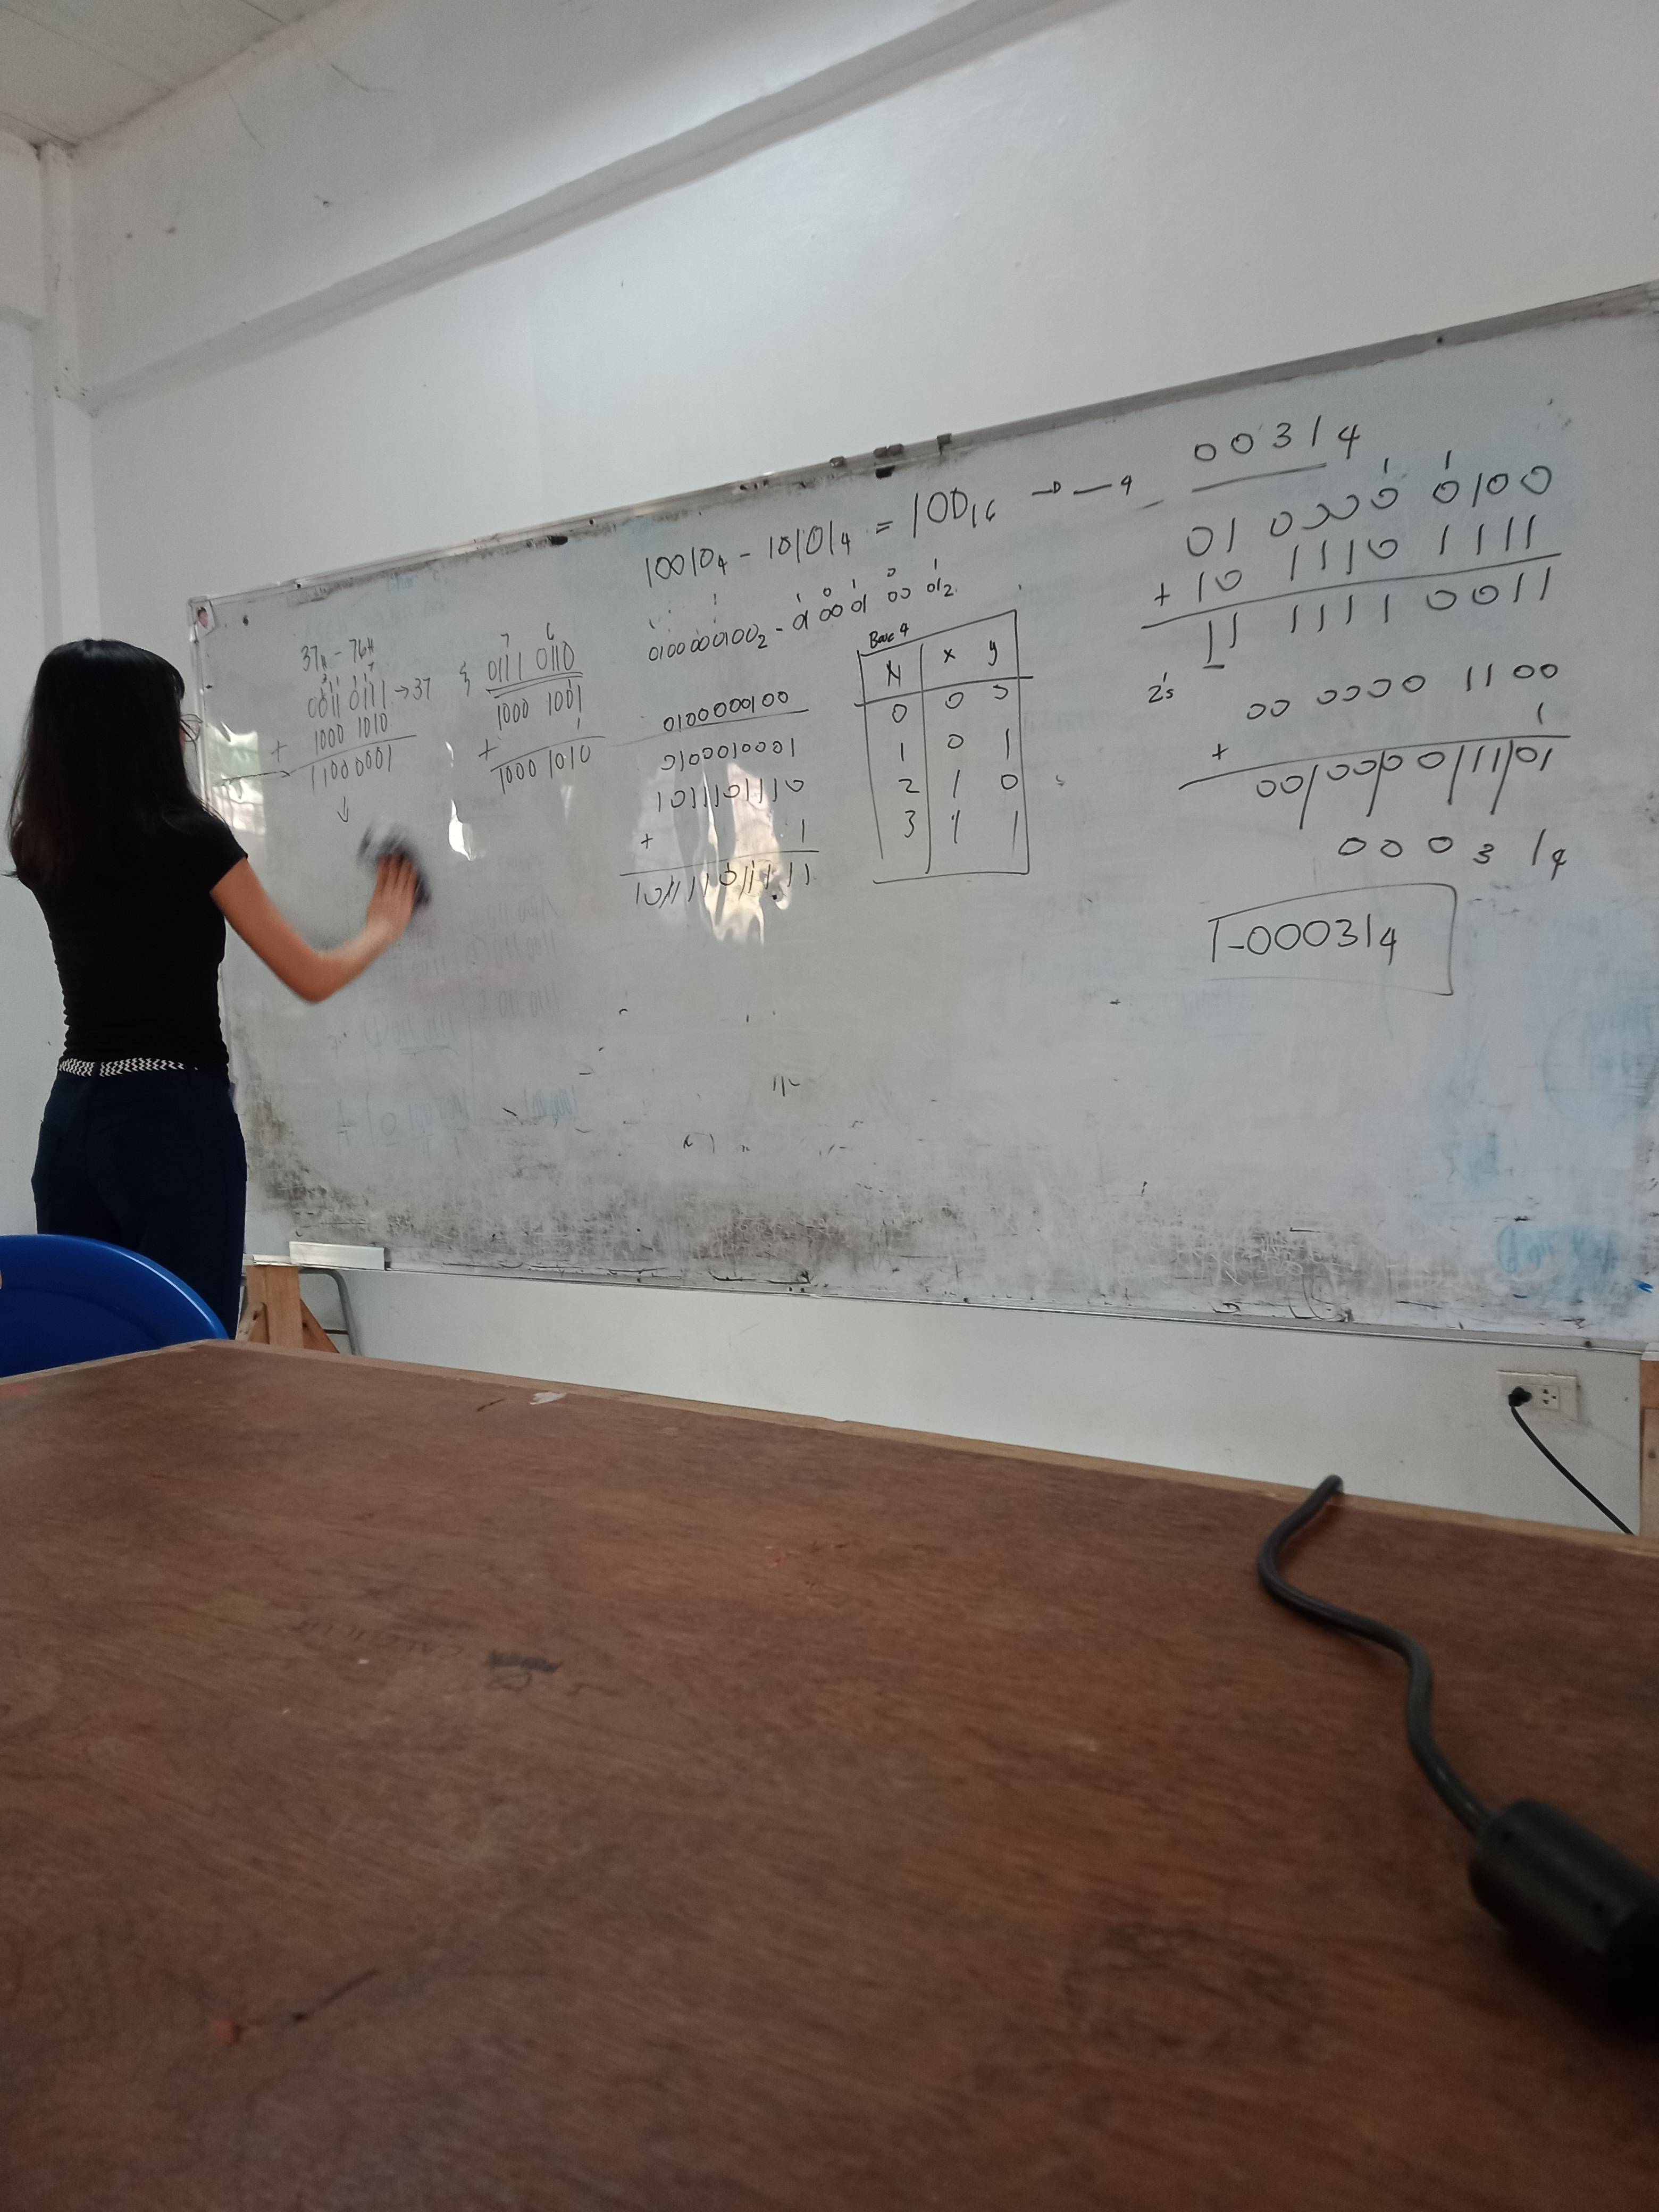 37H - 76H
0011 0111 → 37
+ 1000 1010
11000001
↓
7 6
0111 0110
1000 1001
+ 1
1000 1010
10010₄ - 10101₄ = 100₁₆ → — 4
0100000100₂ - 01 00 01 00 01₂
0100000100
0100010001
1011101110
+ 1
1011101111
Base 4
N x y
0 0 0
1 0 1
2 1 0
3 1 1
00314
1 1
01 0000 0100
+ 10 1110 1111
11 1111 0011
2's
00 0000 1100
+ 1
00|00|00|11|01
0 0 0 3 1₄
-00031₄